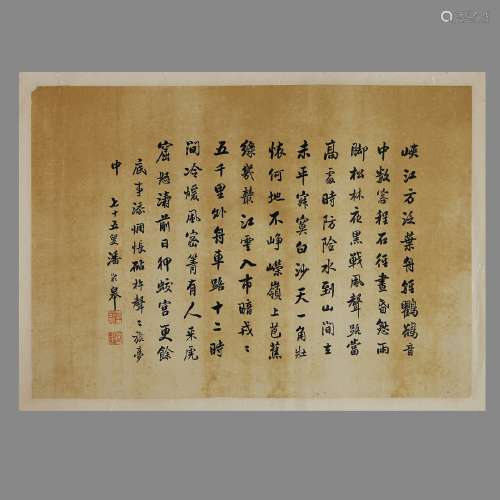 峽江方泛葉舟經鸚鵡音
中數客程石徑晝昏然雨
腳松林夜黑戰風聲路當
高處時防險水到山間立
未平寂寞白沙天一角壯
懷何地不崢嶸嶺上芭蕉
綠幾叢江雲入市暗我〻
五千里外舟車路十二時
間冷煖風宻箐有人采虎
窟怒濤前日狎蛟宮更餘
底事添惆悵砧杵聲〻旅夢
中 七十五叟潘齡皋